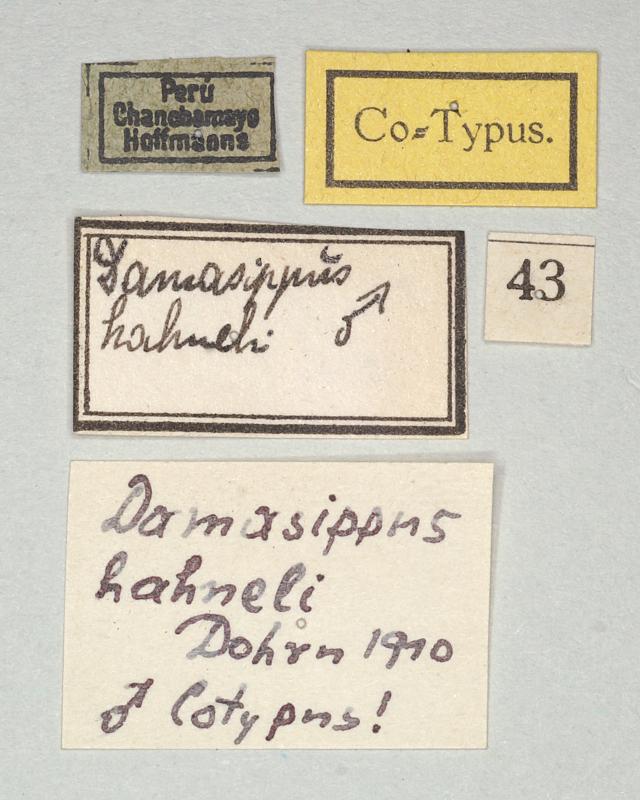 Perú
Chanchamayo
Hoffmanns
Co-Typus.
Damasippus
hahneli ♂
43
Damasippus
hahneli
Dohrn 1910
♂ Cotypus!